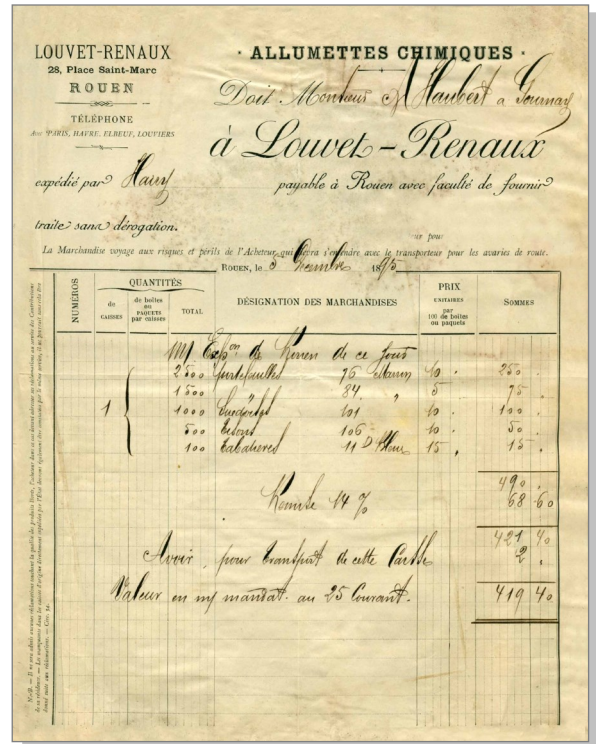 LOUVET-RENAUX
28, Place Saint-Marc
ROUEN
TÉLÉPHONE
Avec PARIS, HAVRE, ELBEUF, LOUVIERS
· ALLUMETTES CHIMIQUES ·
Doit Monsieur Haubert à Gournay
à Louvet-Renaux
expédié par payable à Rouen avec faculté de fournir
traite sans dérogation.
La Marchandise voyage aux risques et périls de l'Acheteur qui devra s'entendre avec le transporteur pour les avaries de route.
ROUEN, le 5 Xembre 1895
NUMÉROS
QUANTITÉS
de CAISSES
de boîtes ou PAQUETS par caisses
TOTAL
DÉSIGNATION DES MARCHANDISES
PRIX UNITAIRES par 100 de boîtes ou paquets
SOMMES
de Rouen de ce jour
2500 Portefeuilles 76 10 250
1500 84 " 5 75
1 1000 Suédoises 101 10 100
500 Tisons 106 10 50
100 Tabatières 11 15 15
490
Remise 14 % 68 60
421 40
Avoir, pour transport de cette Caisse 2
Valeur en m/ mandat au 25 Courant. 419 40